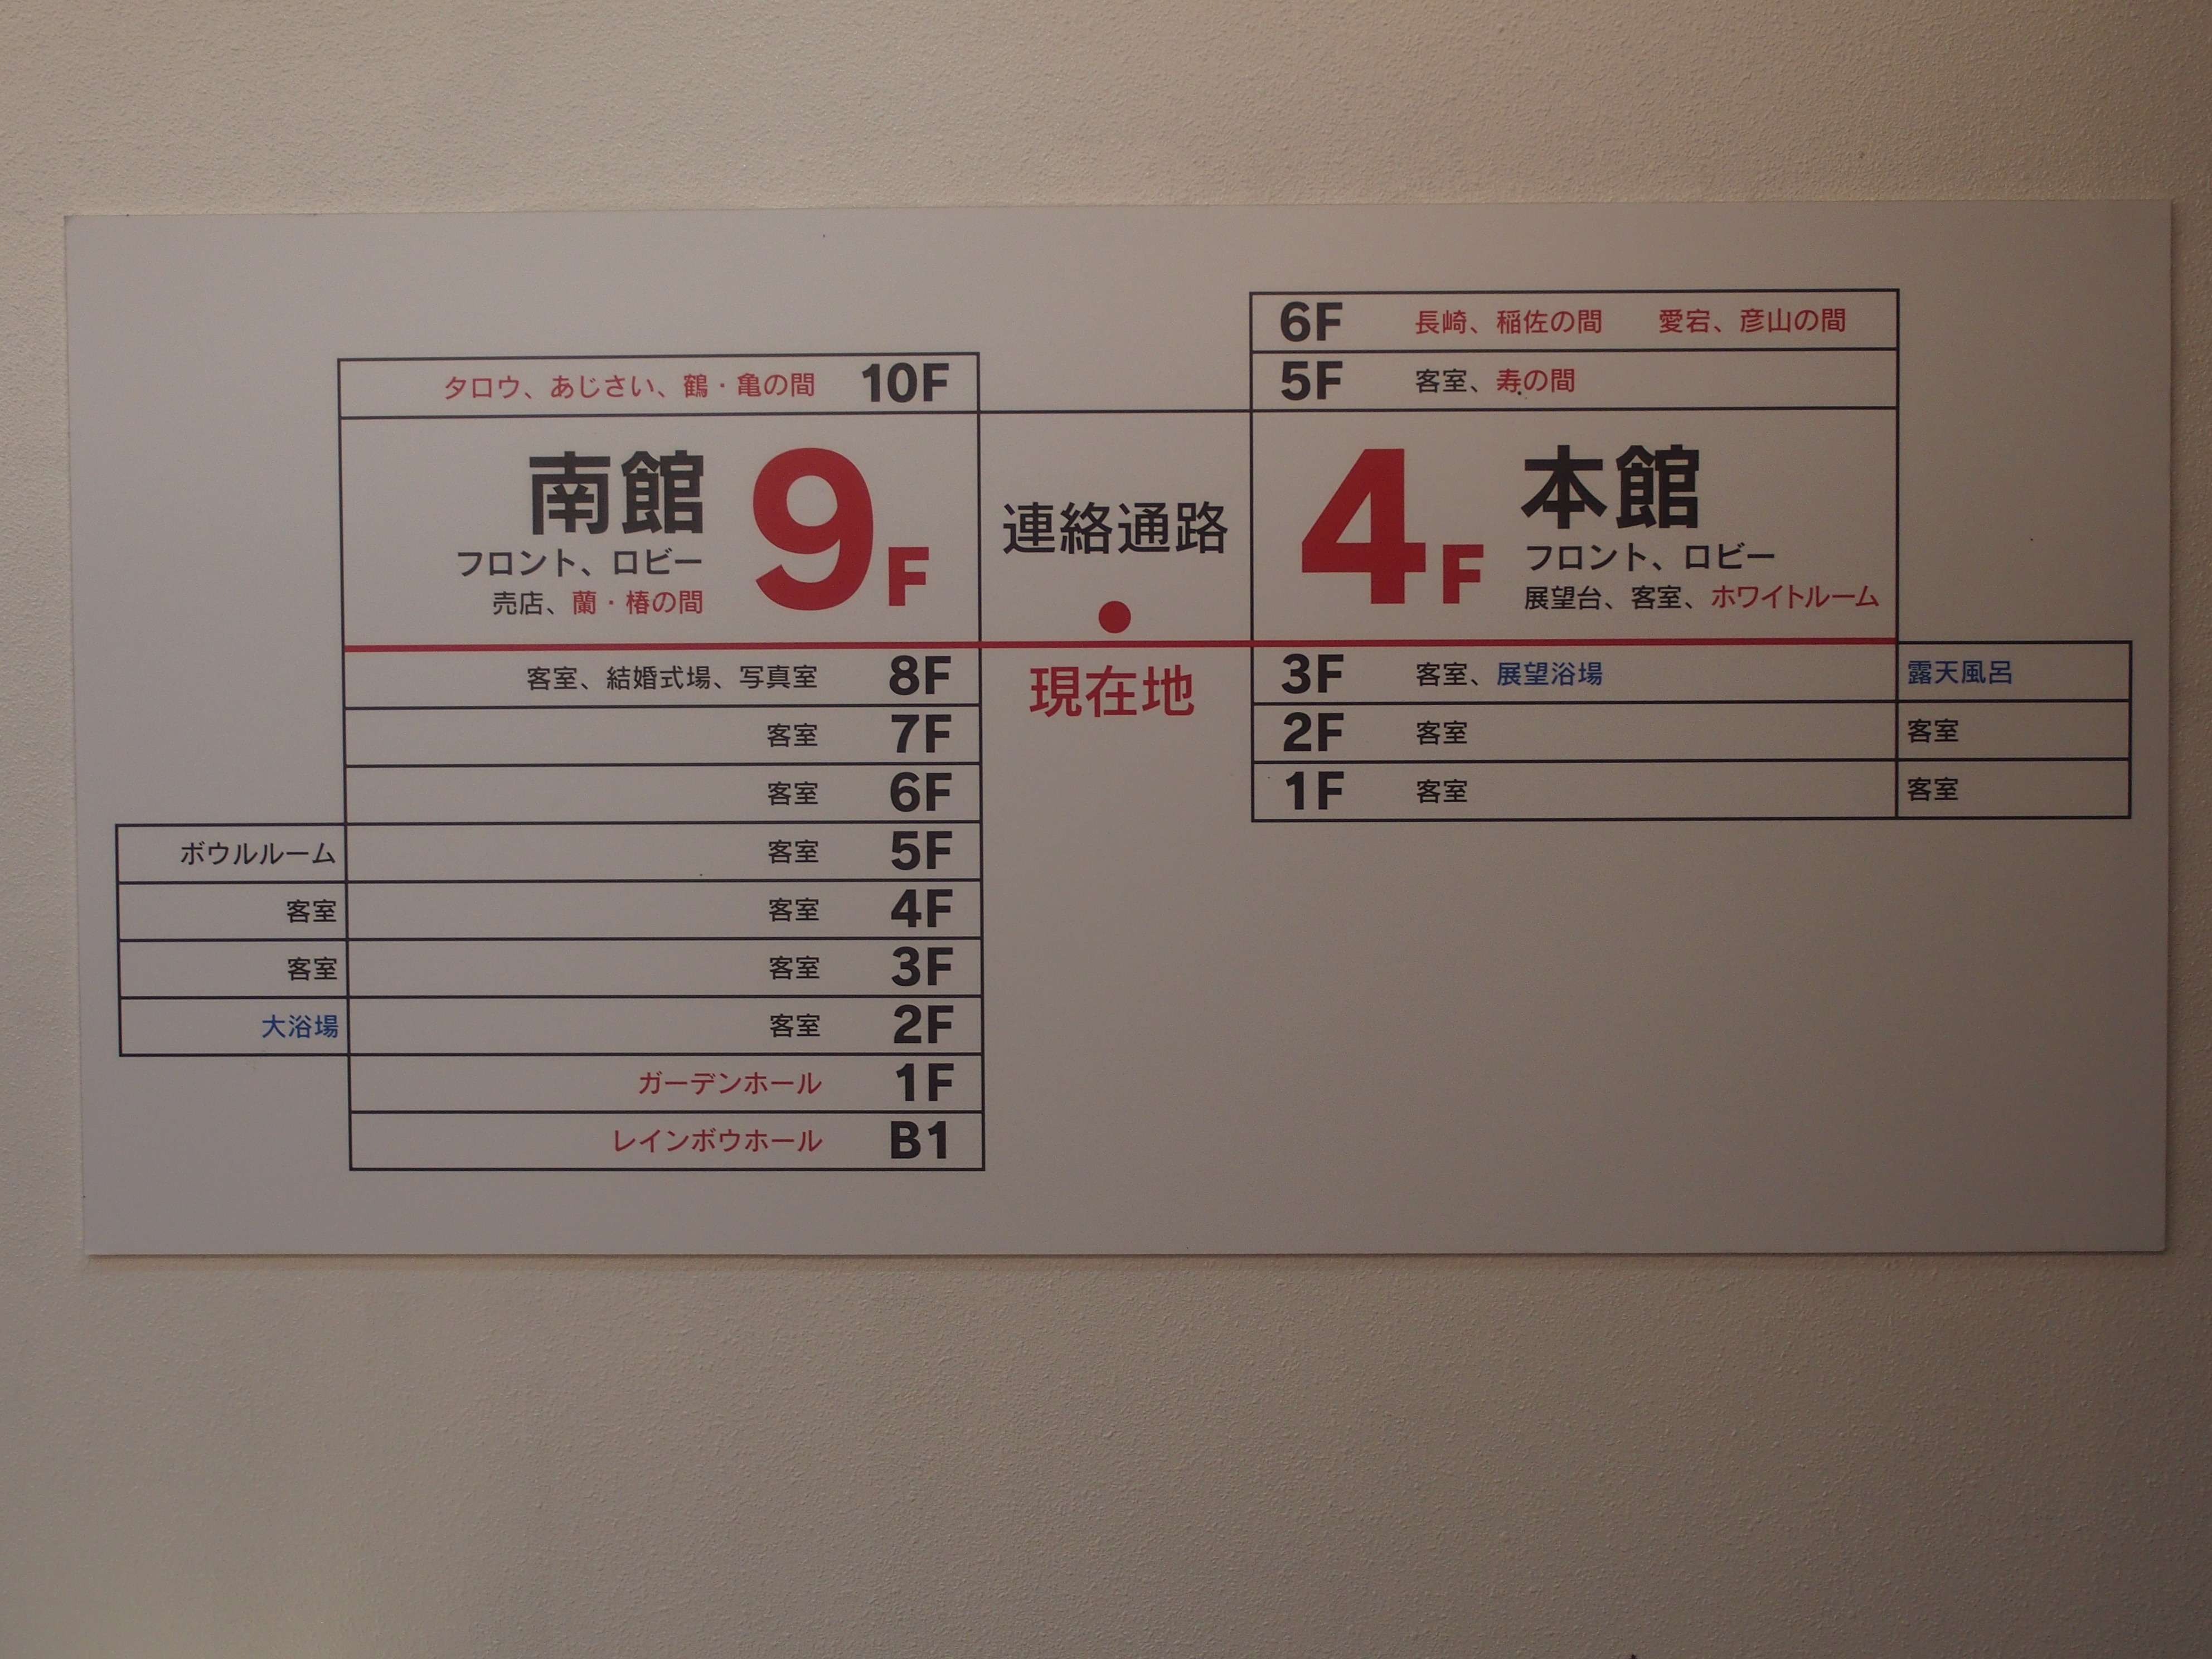 タロウ、あじさい、鶴・亀の間 10F
南館 9F
フロント、ロビー
売店、蘭・椿の間
客室、結婚式場、写真室 8F
客室 7F
客室 6F
ボウルルーム 客室 5F
客室 客室 4F
客室 客室 3F
大浴場 客室 2F
ガーデンホール 1F
レインボウホール B1
連絡通路
現在地
6F 長崎、稲佐の間 愛宕、彦山の間
5F 客室、寿の間
4F 本館
フロント、ロビー
展望台、客室、ホワイトルーム
3F 客室、展望浴場 露天風呂
2F 客室 客室
1F 客室 客室